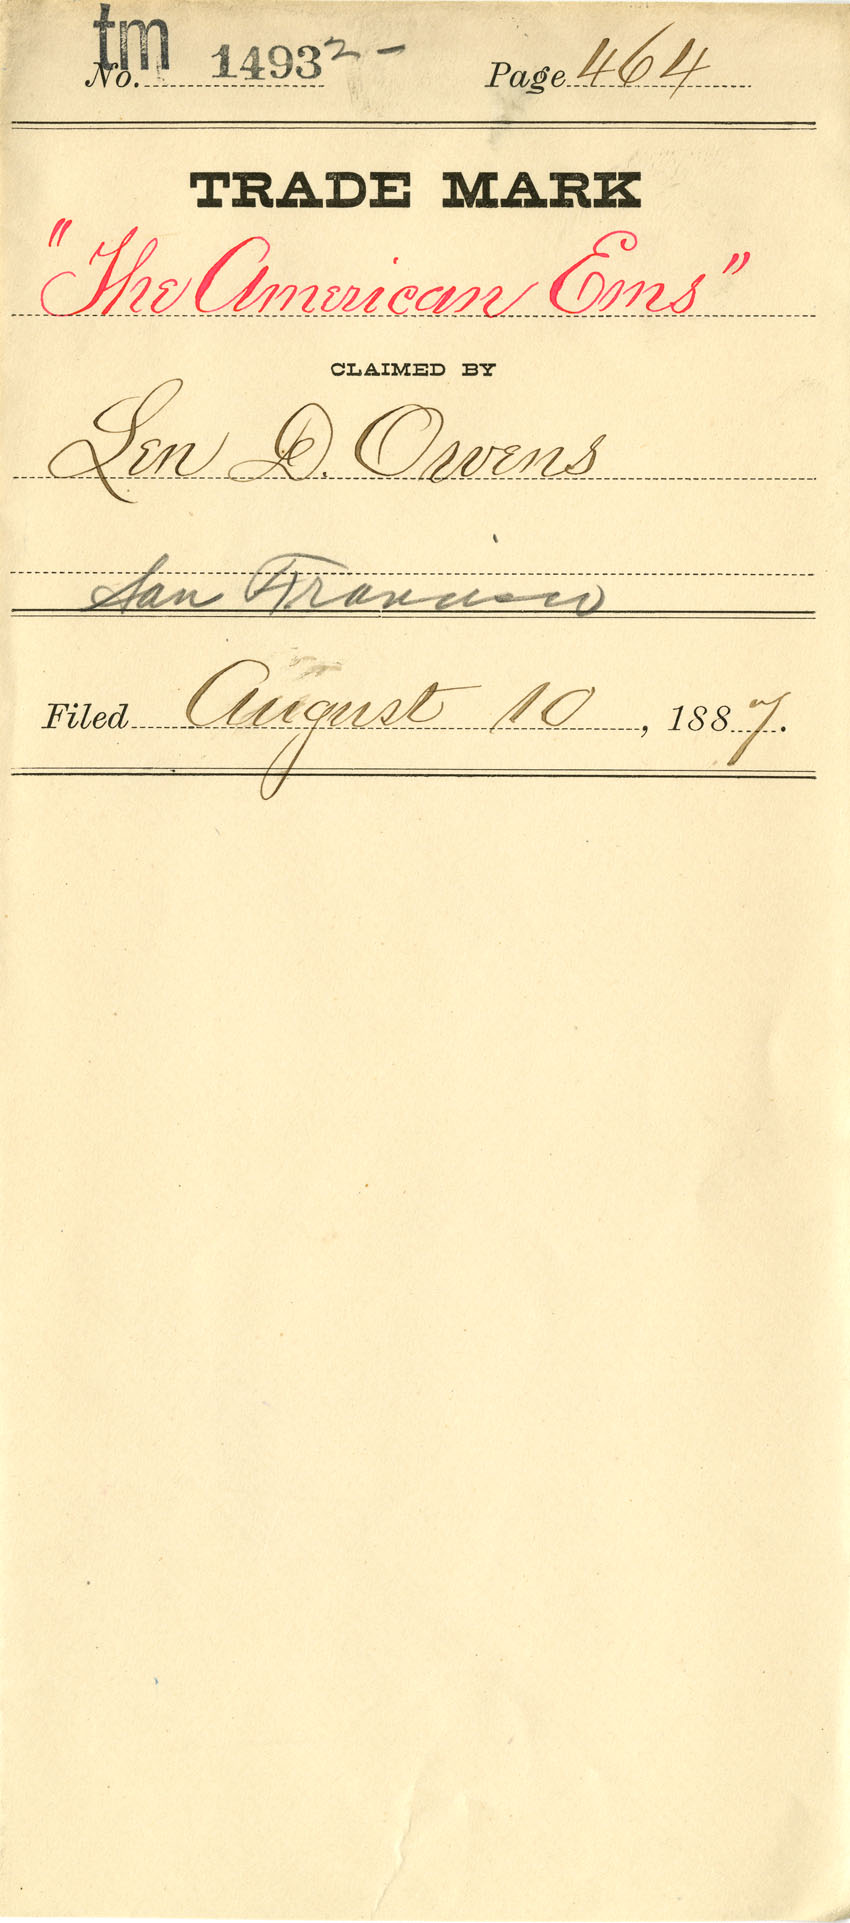 tm
No. 1493 2 - Page 464
TRADE MARK
"The American Ems"
CLAIMED BY
Len D. Owens
San Francisco
Filed August 10, 1887.